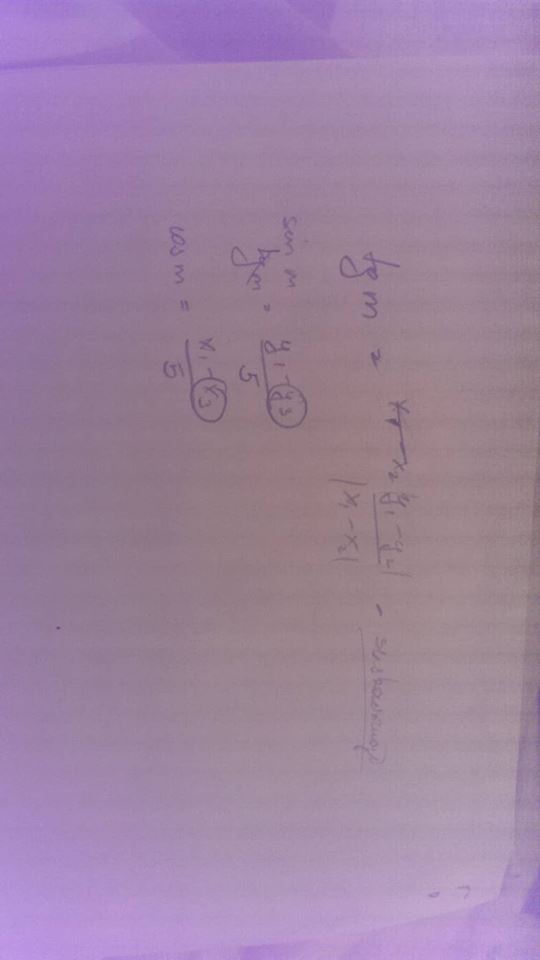 tg m = x₂ |y₁ - y₂| / |x₁ - x₂| -
sin m
tg m = y₁ - y₃ / 5
cos m = x₁ - x₃ / 5